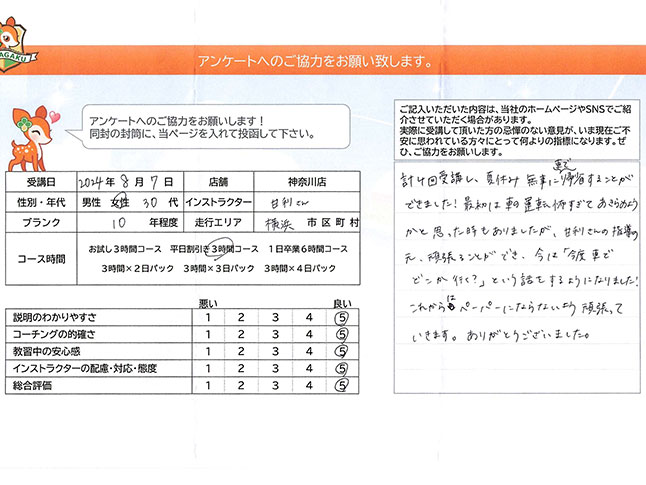 NAGAKU
アンケートへのご協力をお願い致します。
アンケートへのご協力をお願いします！
同封の封筒に、当ページを入れて投函して下さい。
受講日 2024年 8月 7日 店舗 神奈川店
性別・年代 男性 女性 30代 インストラクター 甘利さん
ブランク 10 年程度 走行エリア 横浜 市区町村
コース時間 お試し3時間コース 平日割引き3時間コース 1日卒業6時間コース
3時間×2日パック 3時間×3日パック 3時間×4日パック
悪い 良い
説明のわかりやすさ 1 2 3 4 5
コーチングの的確さ 1 2 3 4 5
教習中の安心感 1 2 3 4 5
インストラクターの配慮・対応・態度 1 2 3 4 5
総合評価 1 2 3 4 5
ご記入いただいた内容は、当社のホームページやSNSでご紹
介させていただく場合があります。
実際に受講して頂いた方の忌憚のない意見が、いま現在ご不
安に思われている方々にとって何よりの指標になります。ぜ
ひ、ご協力をお願いします。
計4回受講し、夏休み 無事に車で帰省することが
できました！最初は車の運転怖すぎてあきらめよう
かと思った時もありましたが、甘利さんの指導の
元、頑張ることができ、今は「今度車で
どこか行く？」という話をするようになりました！
これからはペーパーにならないよう頑張って
いきます。ありがとうございました。